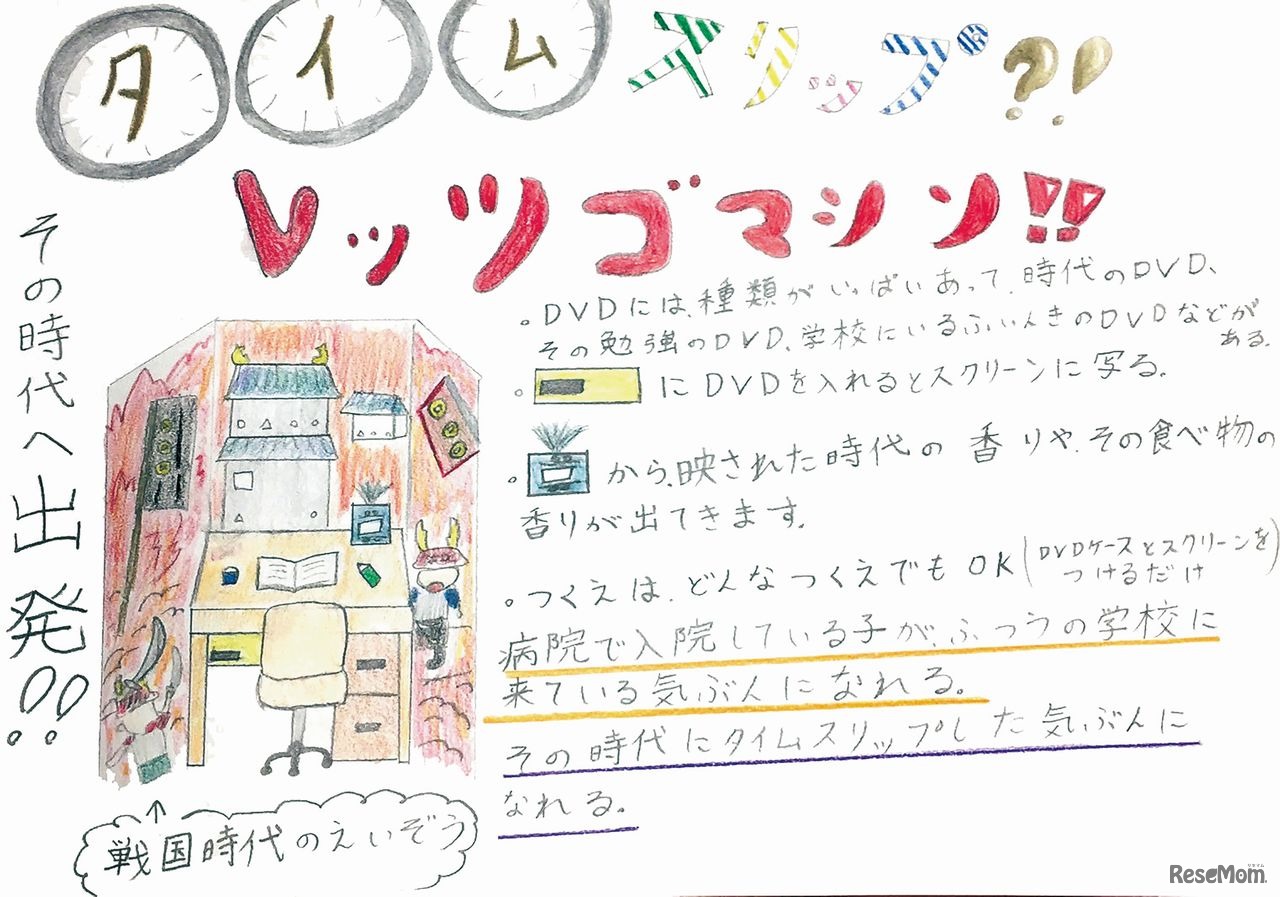 タイムスリップ?!
レッツゴマシン!!
その時代へ出発!!
。DVDには、種類がいっぱいあって、時代のDVD、
その勉強のDVD、学校にいるふいんきのDVDなどが
ある。
。にDVDを入れるとスクリーンに写る。
。から、映された時代の香りや、その食べ物の
香りが出てきます。
。つくえは、どんなつくえでもOK(DVDケースとスクリーンを
つけるだけ)
病院で入院している子が、ふつうの学校に
来ている気ぶんになれる。
その時代にタイムスリップした気ぶんに
なれる。
↑
戦国時代のえいぞう
リセマム
ReseMom.